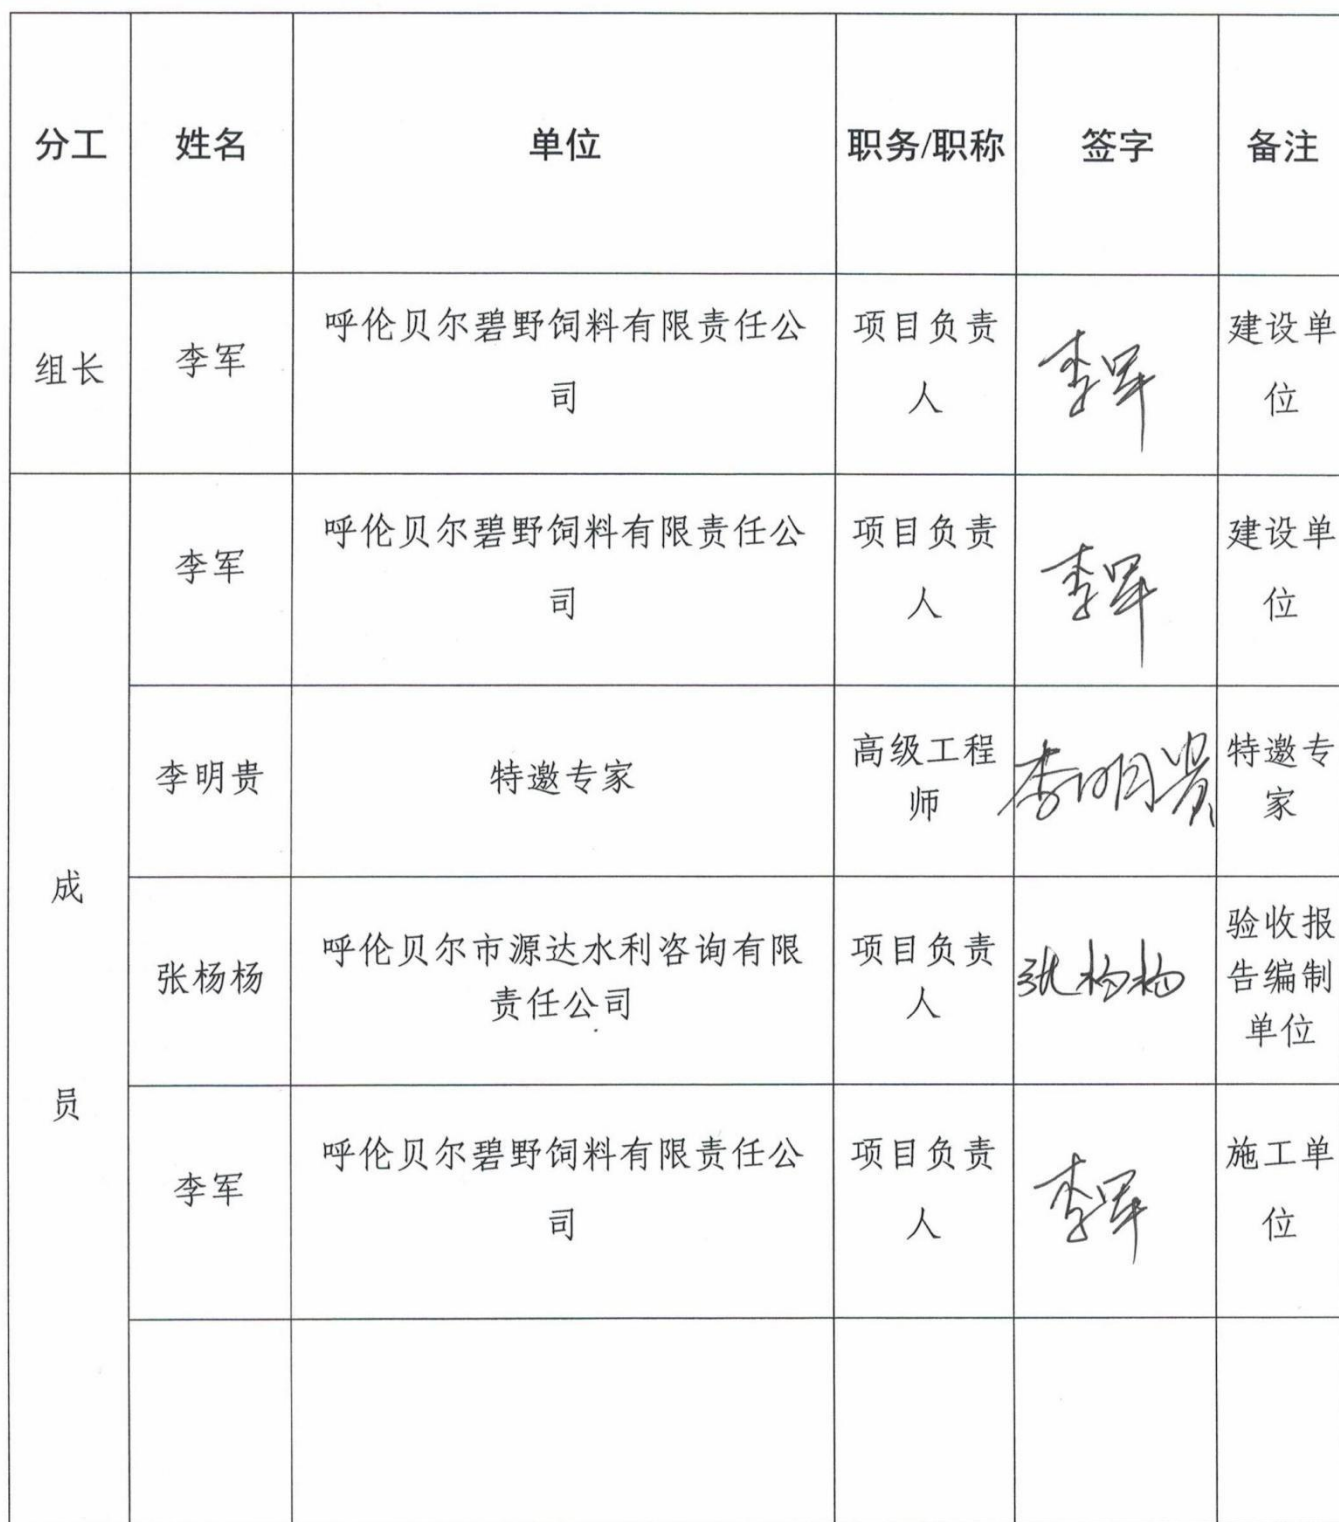 分工 姓名 单位 职务/职称 签字 备注
组长 李军 呼伦贝尔碧野饲料有限责任公
司 项目负责
人 李军 建设单
位
成
员
李军 呼伦贝尔碧野饲料有限责任公
司 项目负责
人 李军 建设单
位
李明贵 特邀专家 高级工程
师 李明贵 特邀专
家
张杨杨 呼伦贝尔市源达水利咨询有限
责任公司 项目负责
人 张杨杨 验收报
告编制
单位
李军 呼伦贝尔碧野饲料有限责任公
司 项目负责
人 李军 施工单
位